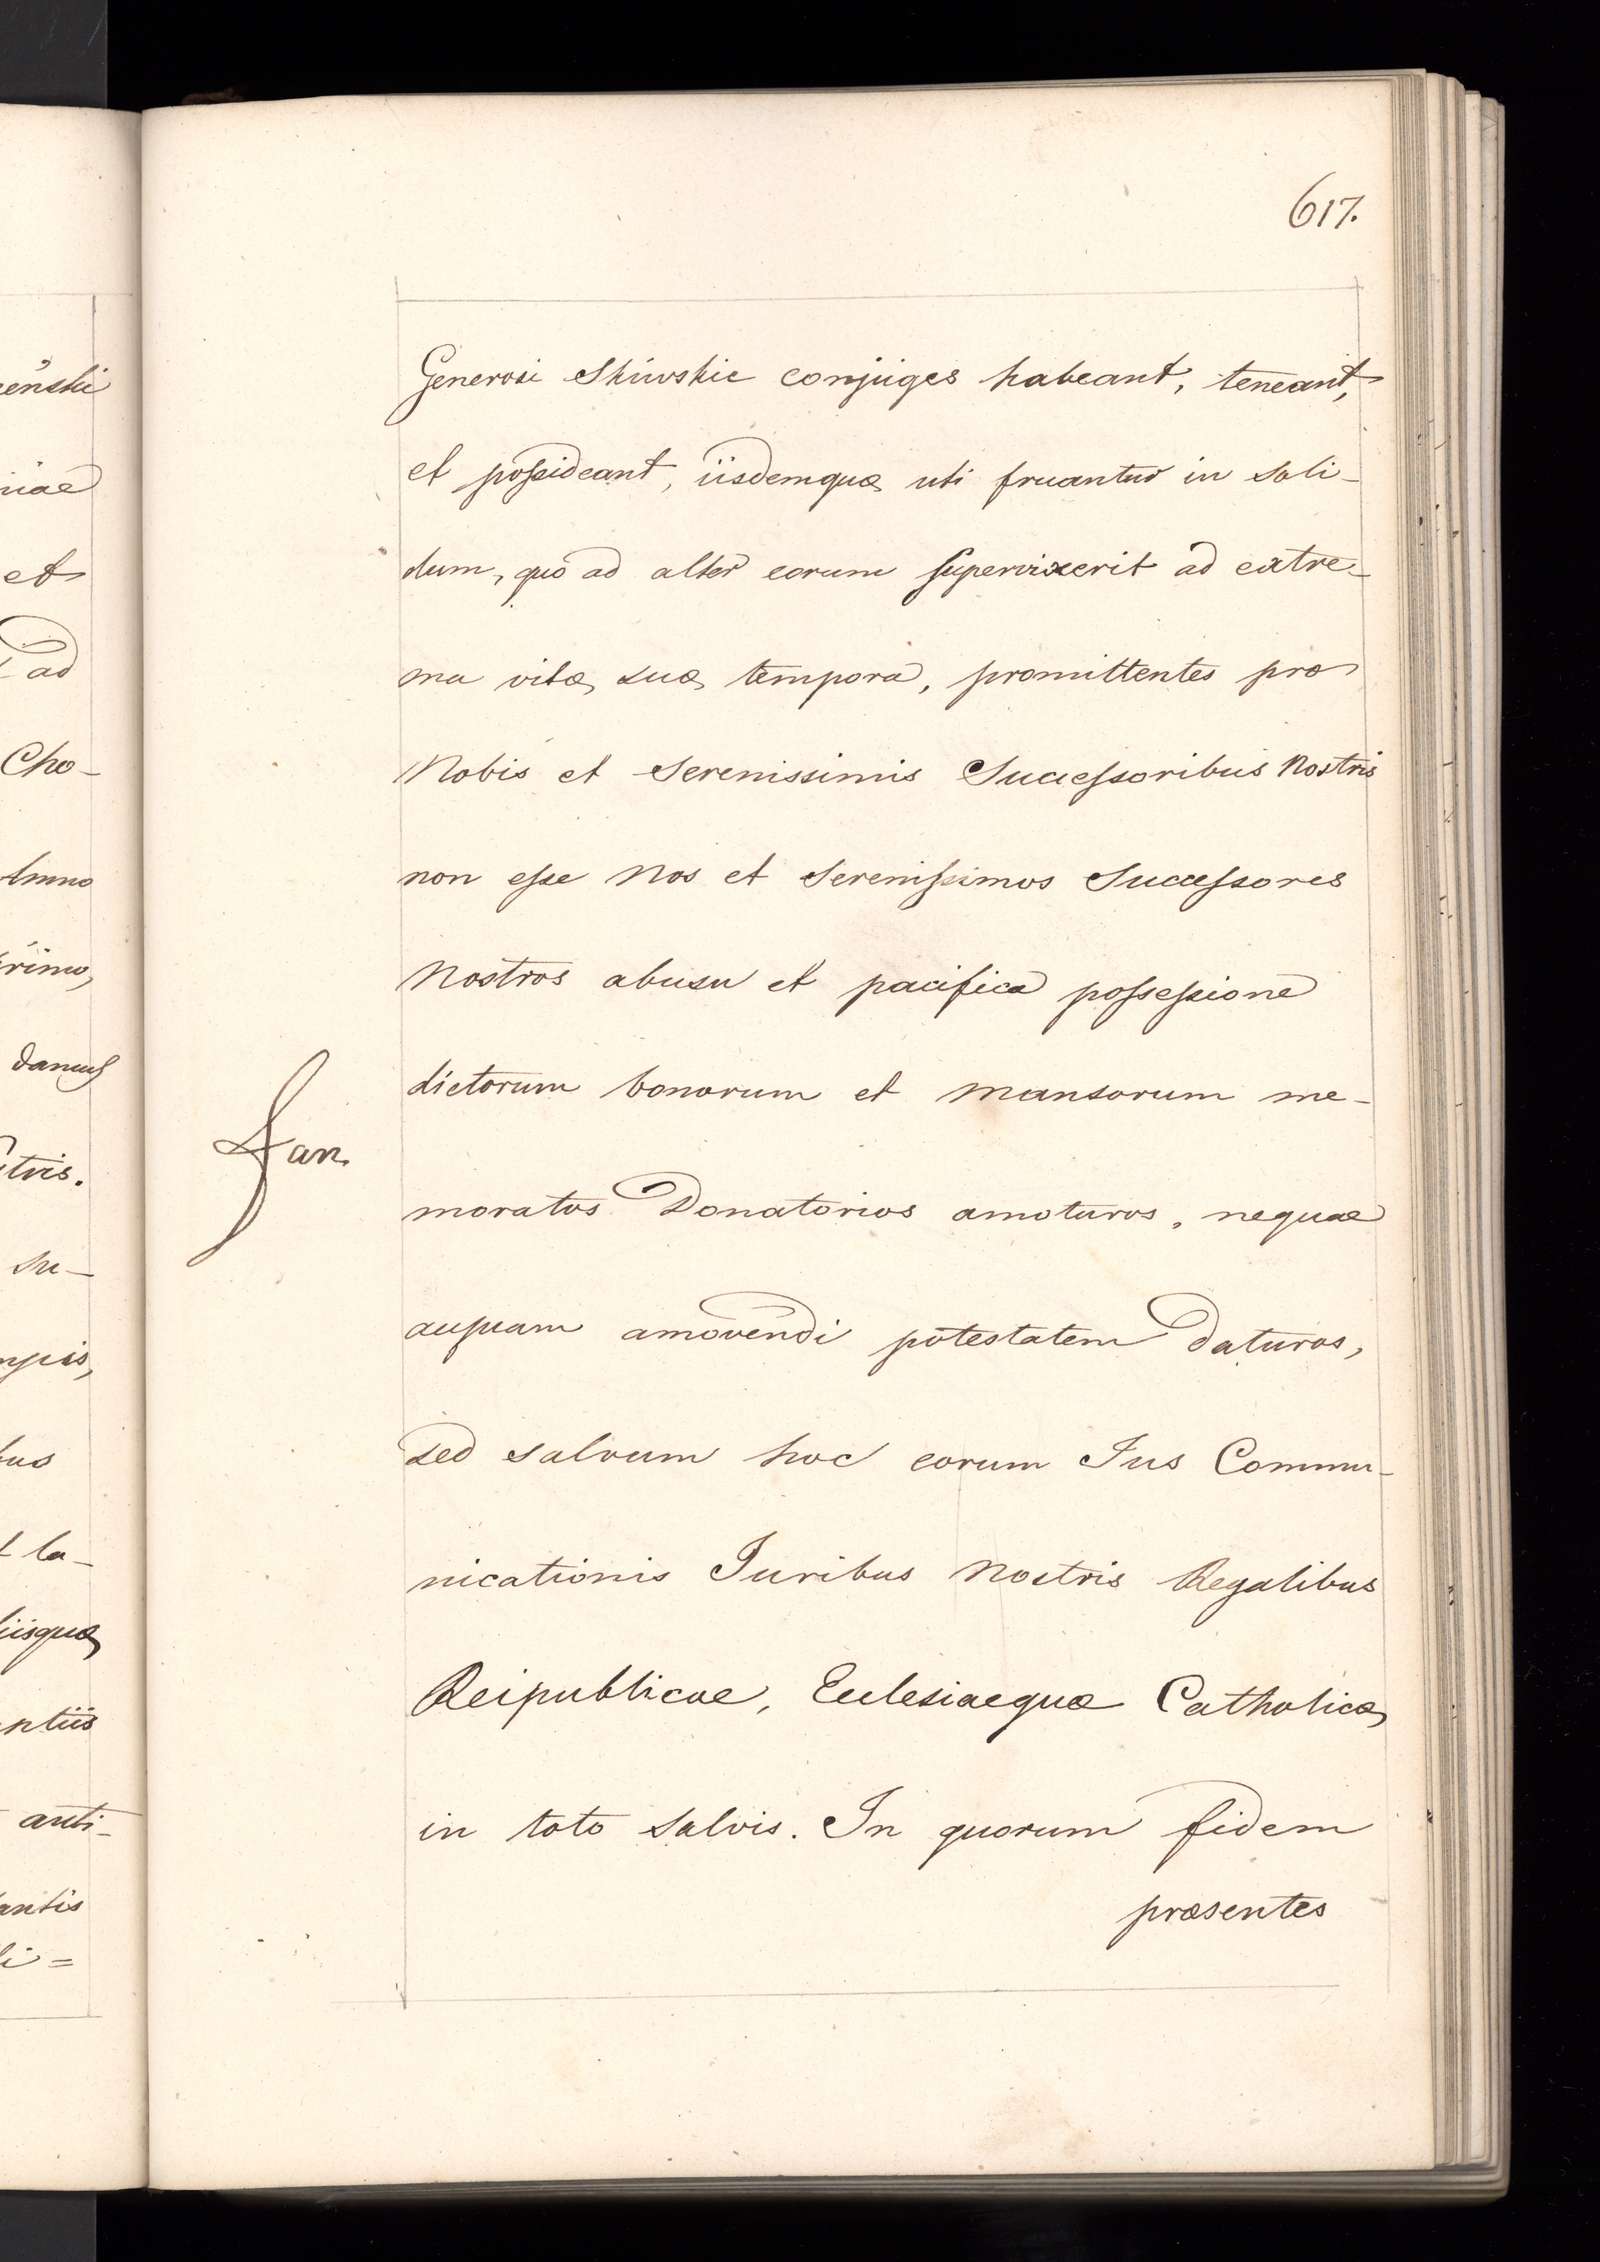 617.
Generosi Skiwskie conjuges habeant, teneant,
et possideant, iisdemquæ uti fruantur in soli-
dum, quo ad alter eorum supervixerit ad extre-
ma vitæ suæ tempora, promittentes pro
Nobis et Serenissimis Successoribus Nostris
non esse Nos et Serenissimos Successores
Nostros abusu et pacifica possessione
dictorum bonorum et mansorum me-
moratos Donatorios amoturos, nequae
auquam amovendi potestatem daturos,
sed salvum hoc eorum Jus Commu-
nicationis Juribus Nostris Regalibus
Reipublicae, Eclesiaequæ Catholicæ
in toto salvis. In quorum fidem
præsentes
enski
niae
et
ad
Cho-
rimo,
damus
su-
la-
iisquæ
antis